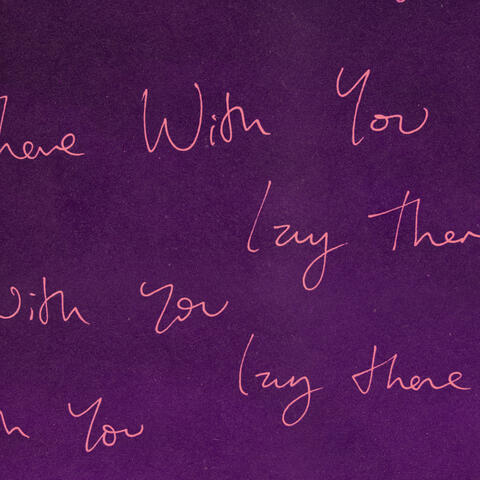 here With You
lay ther
With You
lay there
h You